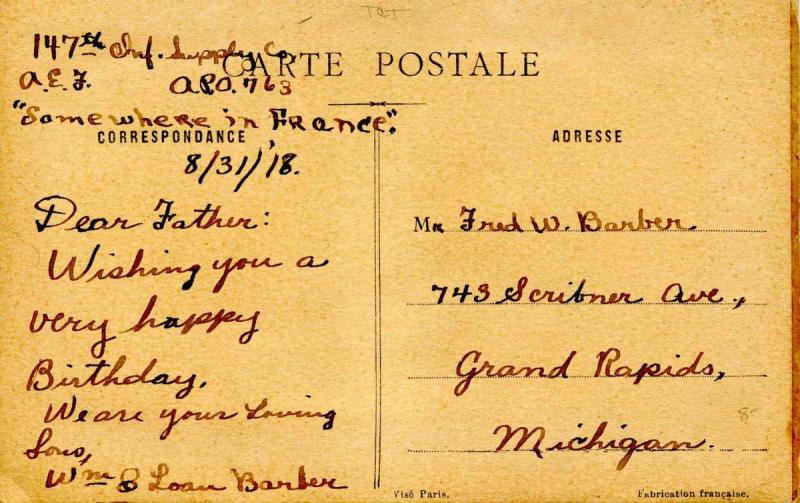 147th Inf. Supply Co
CARTE POSTALE
A.E.F. A.P.O. 763
"Somewhere in France".
CORRESPONDANCE
8/31/18.
Dear Father:
Wishing you a
very happy
Birthday.
We are your loving
Sons,
Wm & Loau Barber
ADRESSE
Mr Fred W. Barber.
743 Scribner Ave.,
Grand Rapids,
Michigan.
8-
Visé Paris.
Fabrication française.